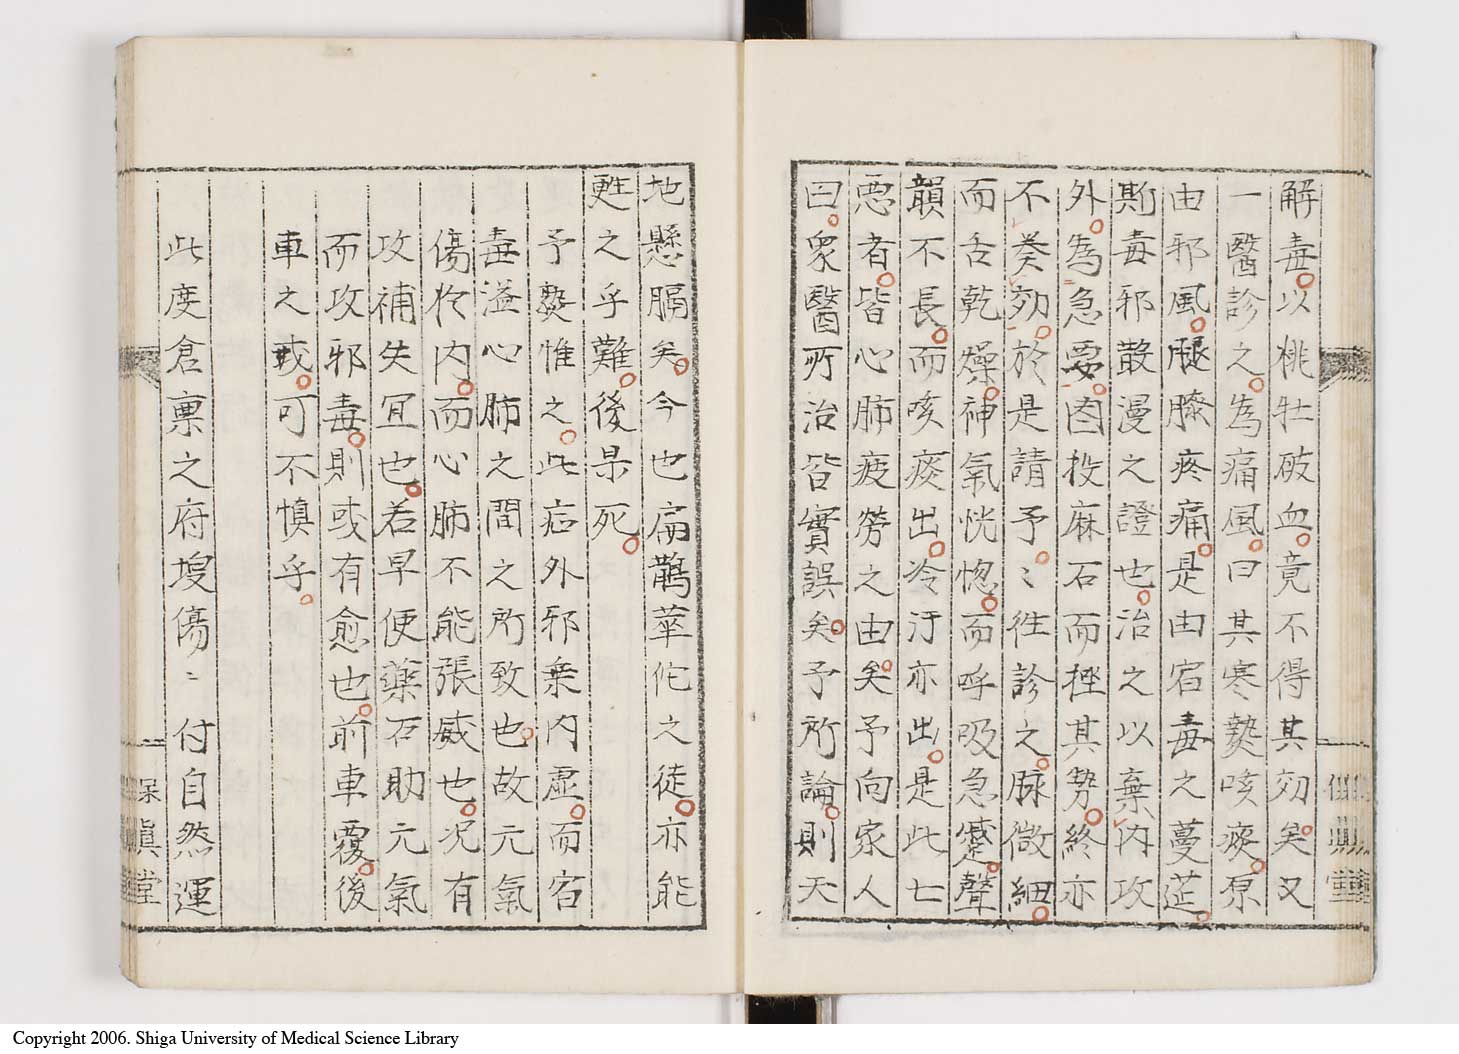 解毒。以桃牡破血。竟不得其効矣。又
一醫診之。為痛風。曰其寒熱咳痰。原
由邪風。腿膝疼痛。是由宿毒之蔓茫。
斯毒邪散漫之證也。治之以棄内攻
外。為急要。因投麻石而挫其勢。終亦
不癸効。於是請予。〻往診之。脉微細。
而舌乾燥。神氣恍惚。而呼吸急蹙。聲
韻不長。而咳痰出。冷汗亦出。是此七
悪者。皆心肺疲勞之由矣。予向家人
曰。衆醫所治皆實誤矣。予所論。則天
地懸膈矣。今也扁鵲華佗之徒。亦能
甦之乎難。後果死。
予熟惟之。此症外邪乗内虚。而宿
毒溢心肺之間之所致也。故元氣
傷於内。而心肺不能張威也。况有
攻補失冝也。若早便藥石助元氣
而攻邪毒。則或有愈也。前車覆。後
車之戒。可不慎乎。
此度倉稟之府埈傷〻付自然運
眞堂
Copyright 2006. Shiga University of Medical Science Library